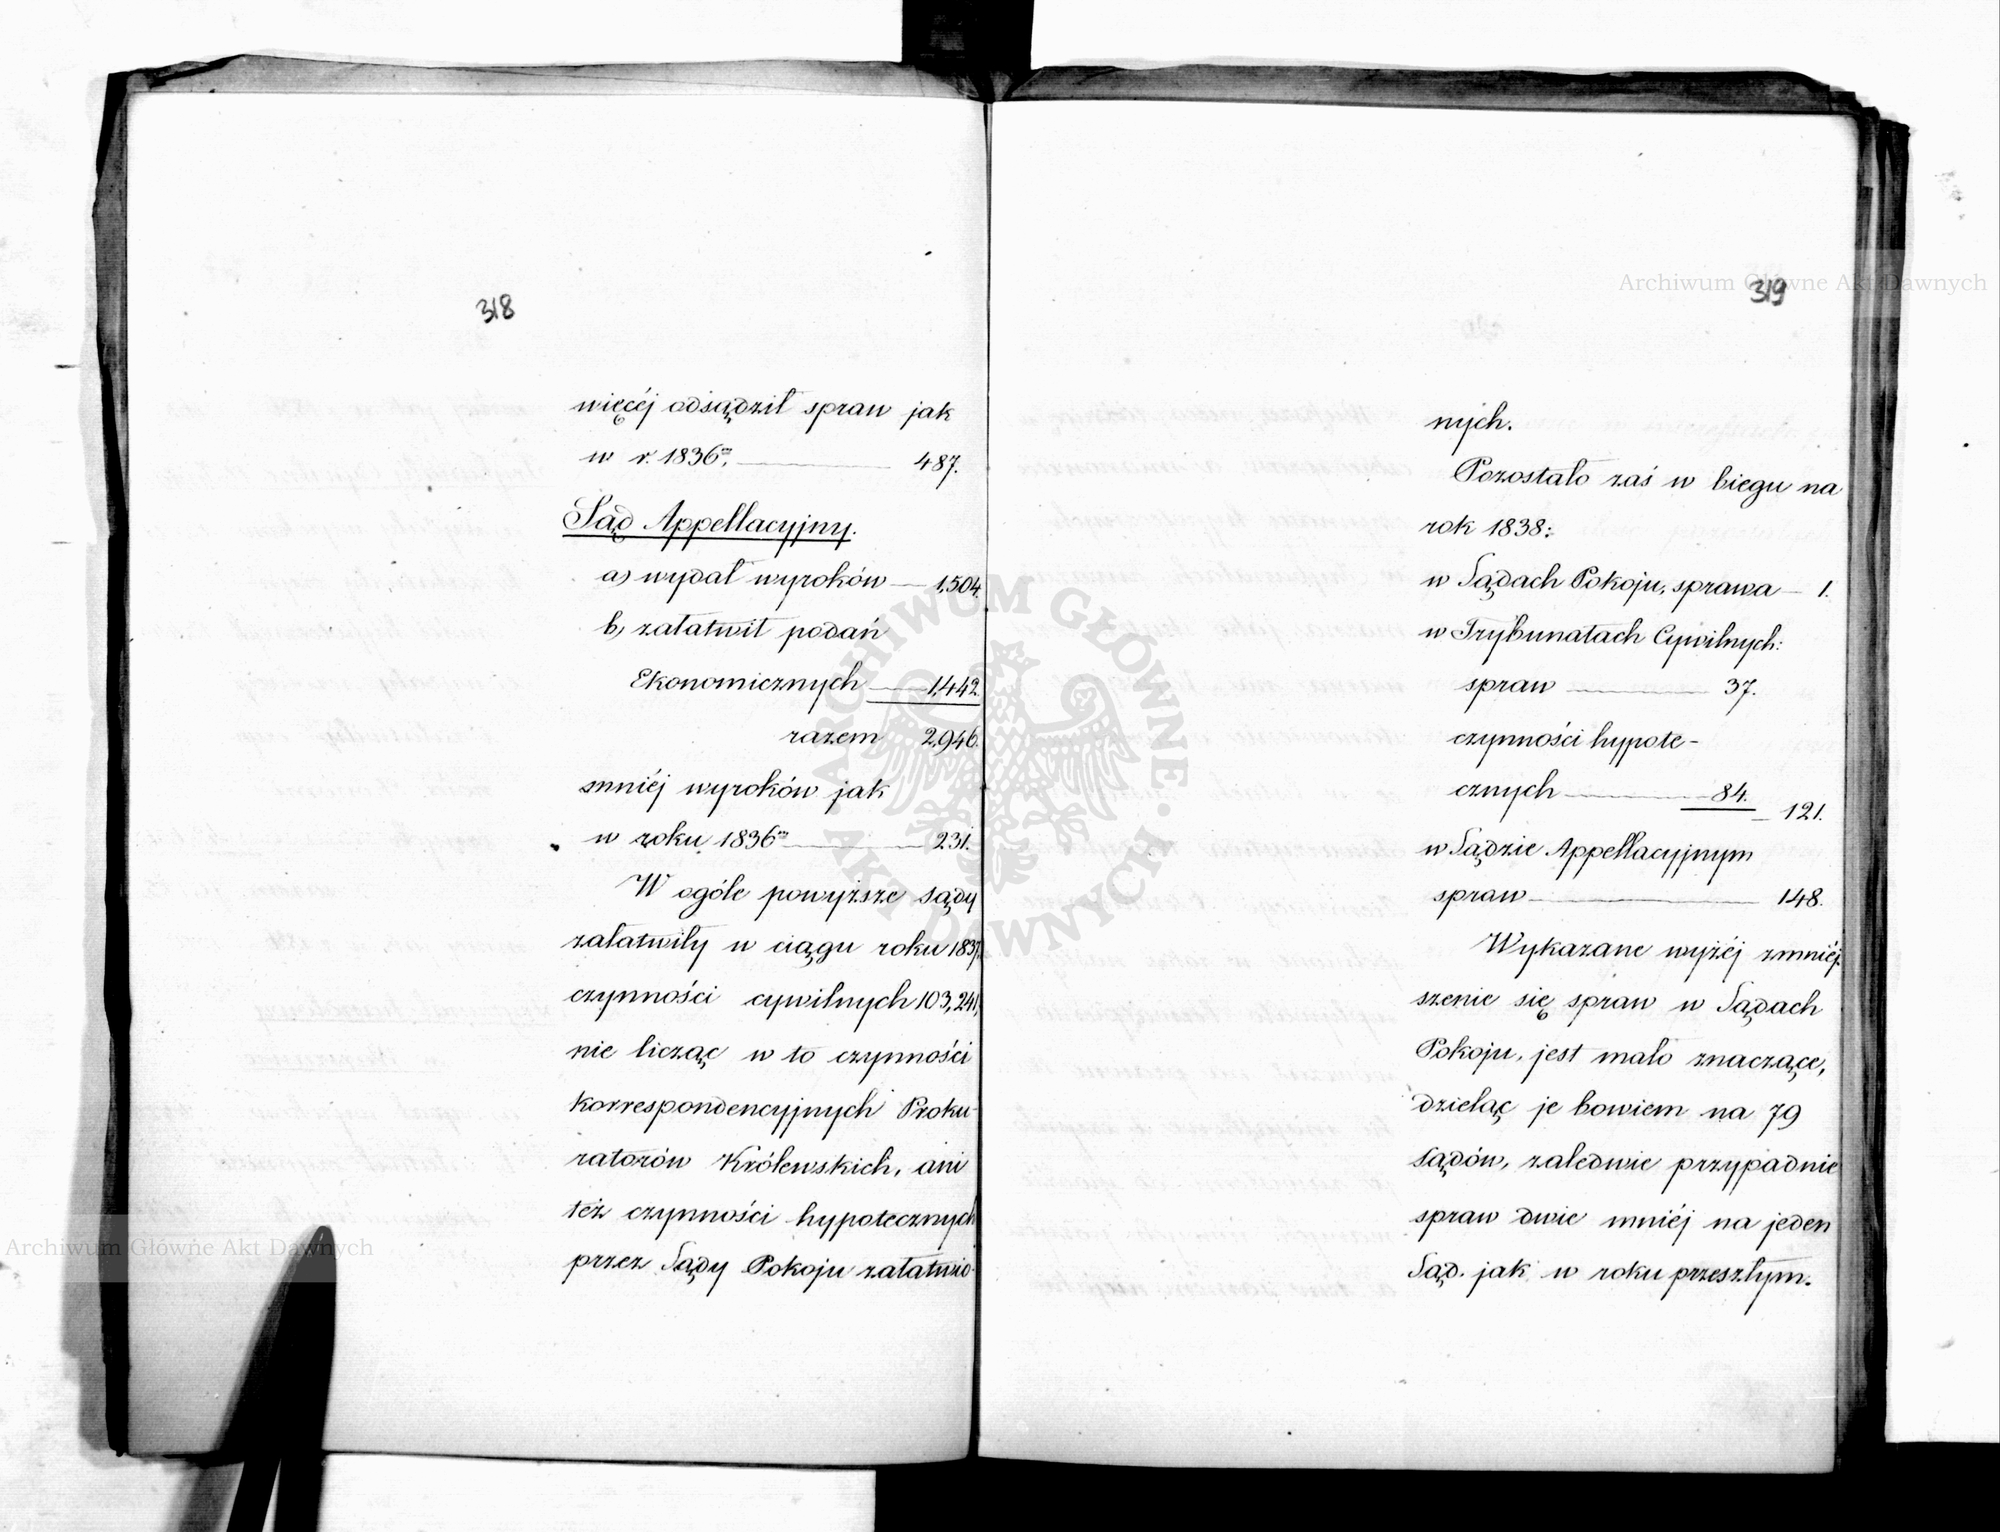 318
więcéj odsądził spraw jak
w r. 1836ᵐ. 487.
Sąd Appellacyjny.
a) wydał wyroków 1,504.
b, załatwił podań
Ekonomicznych 1,442.
razem 2,946.
mniéj wyroków jak
w roku 1836ᵐ 231.
W ogóle powyższe sądy
załatwiły w ciągu roku 1837.
czynności cywilnych 103,241,
nie licząc w to czynności
korrespondencyjnych Proku-
ratorów Królewskich, ani
też czynności hypotecznych
przez Sądy Pokoju załatwio-
319
nych.
Pozostało zaś w biegu na
rok 1838:
w Sądach Pokoju, sprawa 1.
w Trybunałach Cywilnych:
spraw 37.
czynności hypote-
cznych 84.
121.
w Sądzie Appellacyjnym
spraw 148.
Wykazane wyżéj zmniéj-
szenie się spraw w Sądach
Pokoju, jest mało znaczące,
dzieląc je bowiem na 79
sądów, zaledwie przypadnie
spraw dwie mniéj na jeden
Sąd. jak w roku przeszłym.
Archiwum Główne Akt Dawnych
Archiwum Główne Akt Dawnych
ARCHIWUM GŁÓWNE · AKT DAWNYCH ·